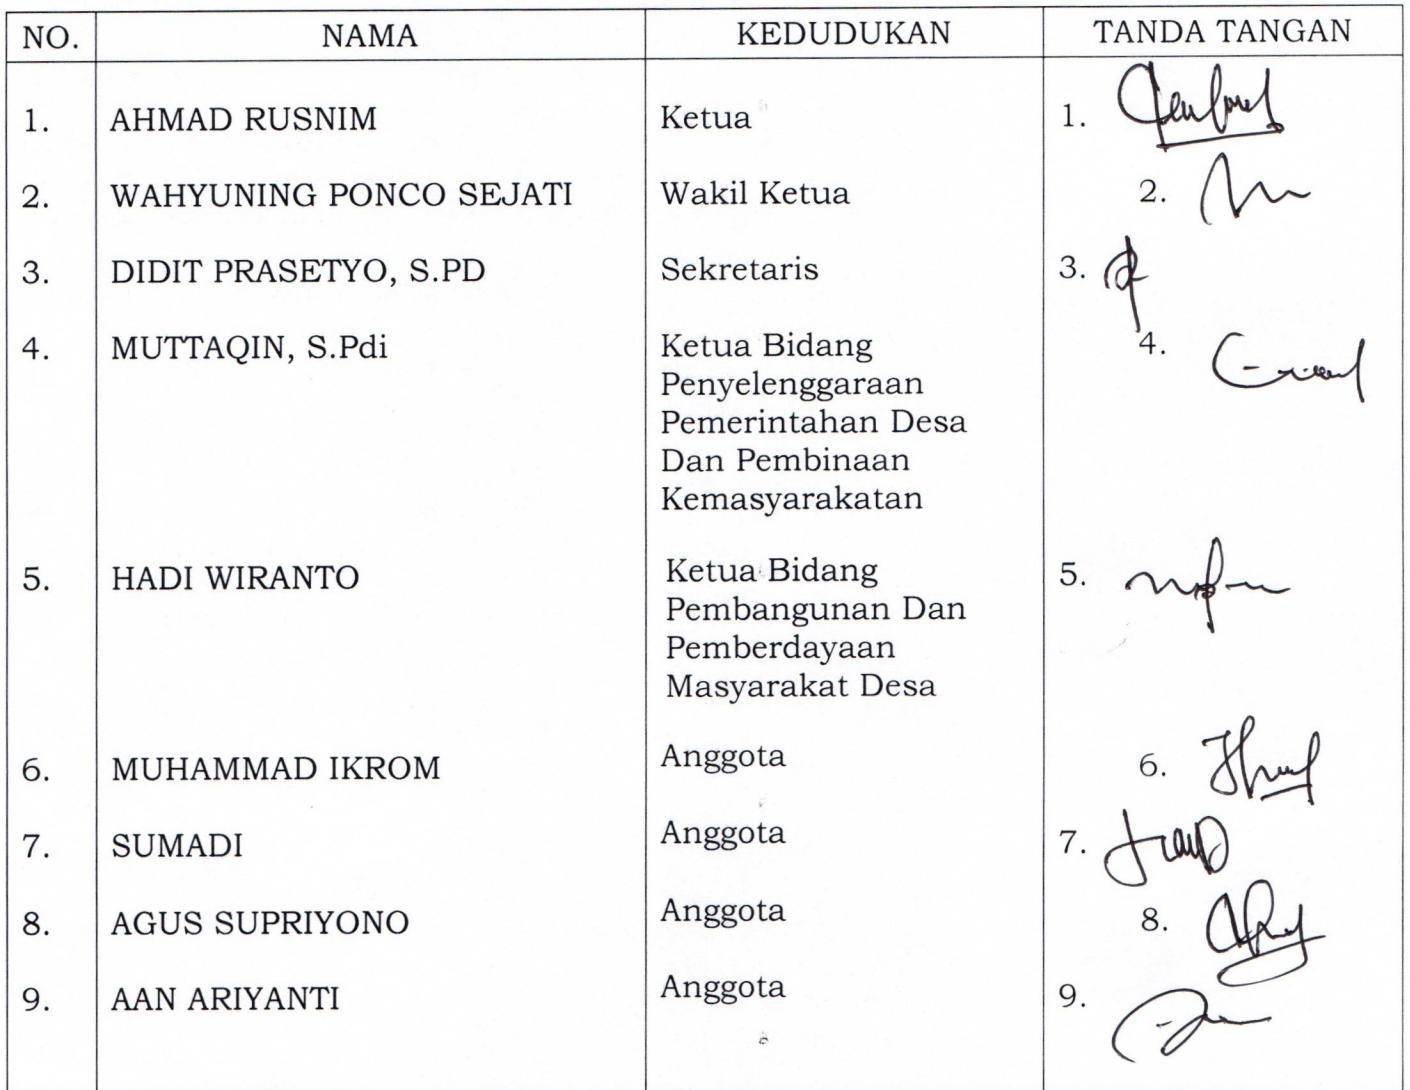 NO. NAMA KEDUDUKAN TANDA TANGAN
1. AHMAD RUSNIM Ketua 1.
2. WAHYUNING PONCO SEJATI Wakil Ketua 2.
3. DIDIT PRASETYO, S.PD Sekretaris 3.
4. MUTTAQIN, S.Pdi Ketua Bidang 4.
Penyelenggaraan
Pemerintahan Desa
Dan Pembinaan
Kemasyarakatan
5. HADI WIRANTO Ketua Bidang 5.
Pembangunan Dan
Pemberdayaan
Masyarakat Desa
6. MUHAMMAD IKROM Anggota 6.
7. SUMADI Anggota 7.
8. AGUS SUPRIYONO Anggota 8.
9. AAN ARIYANTI Anggota 9.